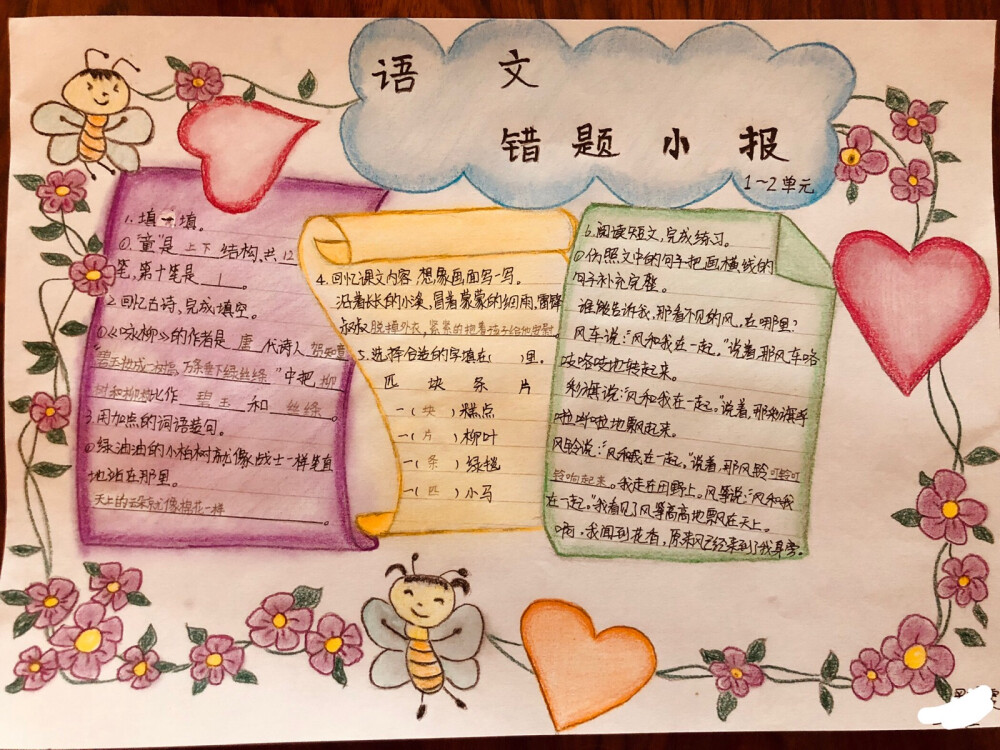 语 文
错 题 小 报
1~2单元
1. 填一填。
①."童"是 上下 结构,共 12
笔,第十笔是 丨 。
2.回忆古诗,完成填空。
①《咏柳》的作者是 唐 代诗人 贺知章
碧玉妆成一树高,万条垂下绿丝绦 "中把 柳
树和柳枝比作 碧玉 和 丝绦 。
3.用加点的词语造句。
①绿油油的小柏树就像战士一样笔直
地站在那里。
天上的云朵就像棉花一样 。
4.回忆课文内容,想象画面写一写。
沿着长长的小溪,冒着蒙蒙的细雨,雷锋
叔叔脱掉外衣,紧紧的抱着孩子给他
5.选择合适的字填在( )里。
匹 块 条 片
一(块)糕点
一(片)柳叶
一(条)绿毯
一(匹)小马
6.阅读短文,完成练习。
①仿照文中的句子把画横线的
句子补充完整。
谁能告诉我,那看不见的风,在哪里?
风车说:"风和我在一起。"说着,那风车咯
吱咯吱地转起来。
彩旗说:"风和我在一起。"说着,那彩旗呼
啦呼啦地飘起来。
风铃说:"风和我在一起。"说着,那风铃叮铃叮
铃响起来。我走在田野上。风筝说:"风和我
在一起。"我看见了风筝高高地飘在天上。
啊,我闻到花香,原来风已经来到了我身旁。